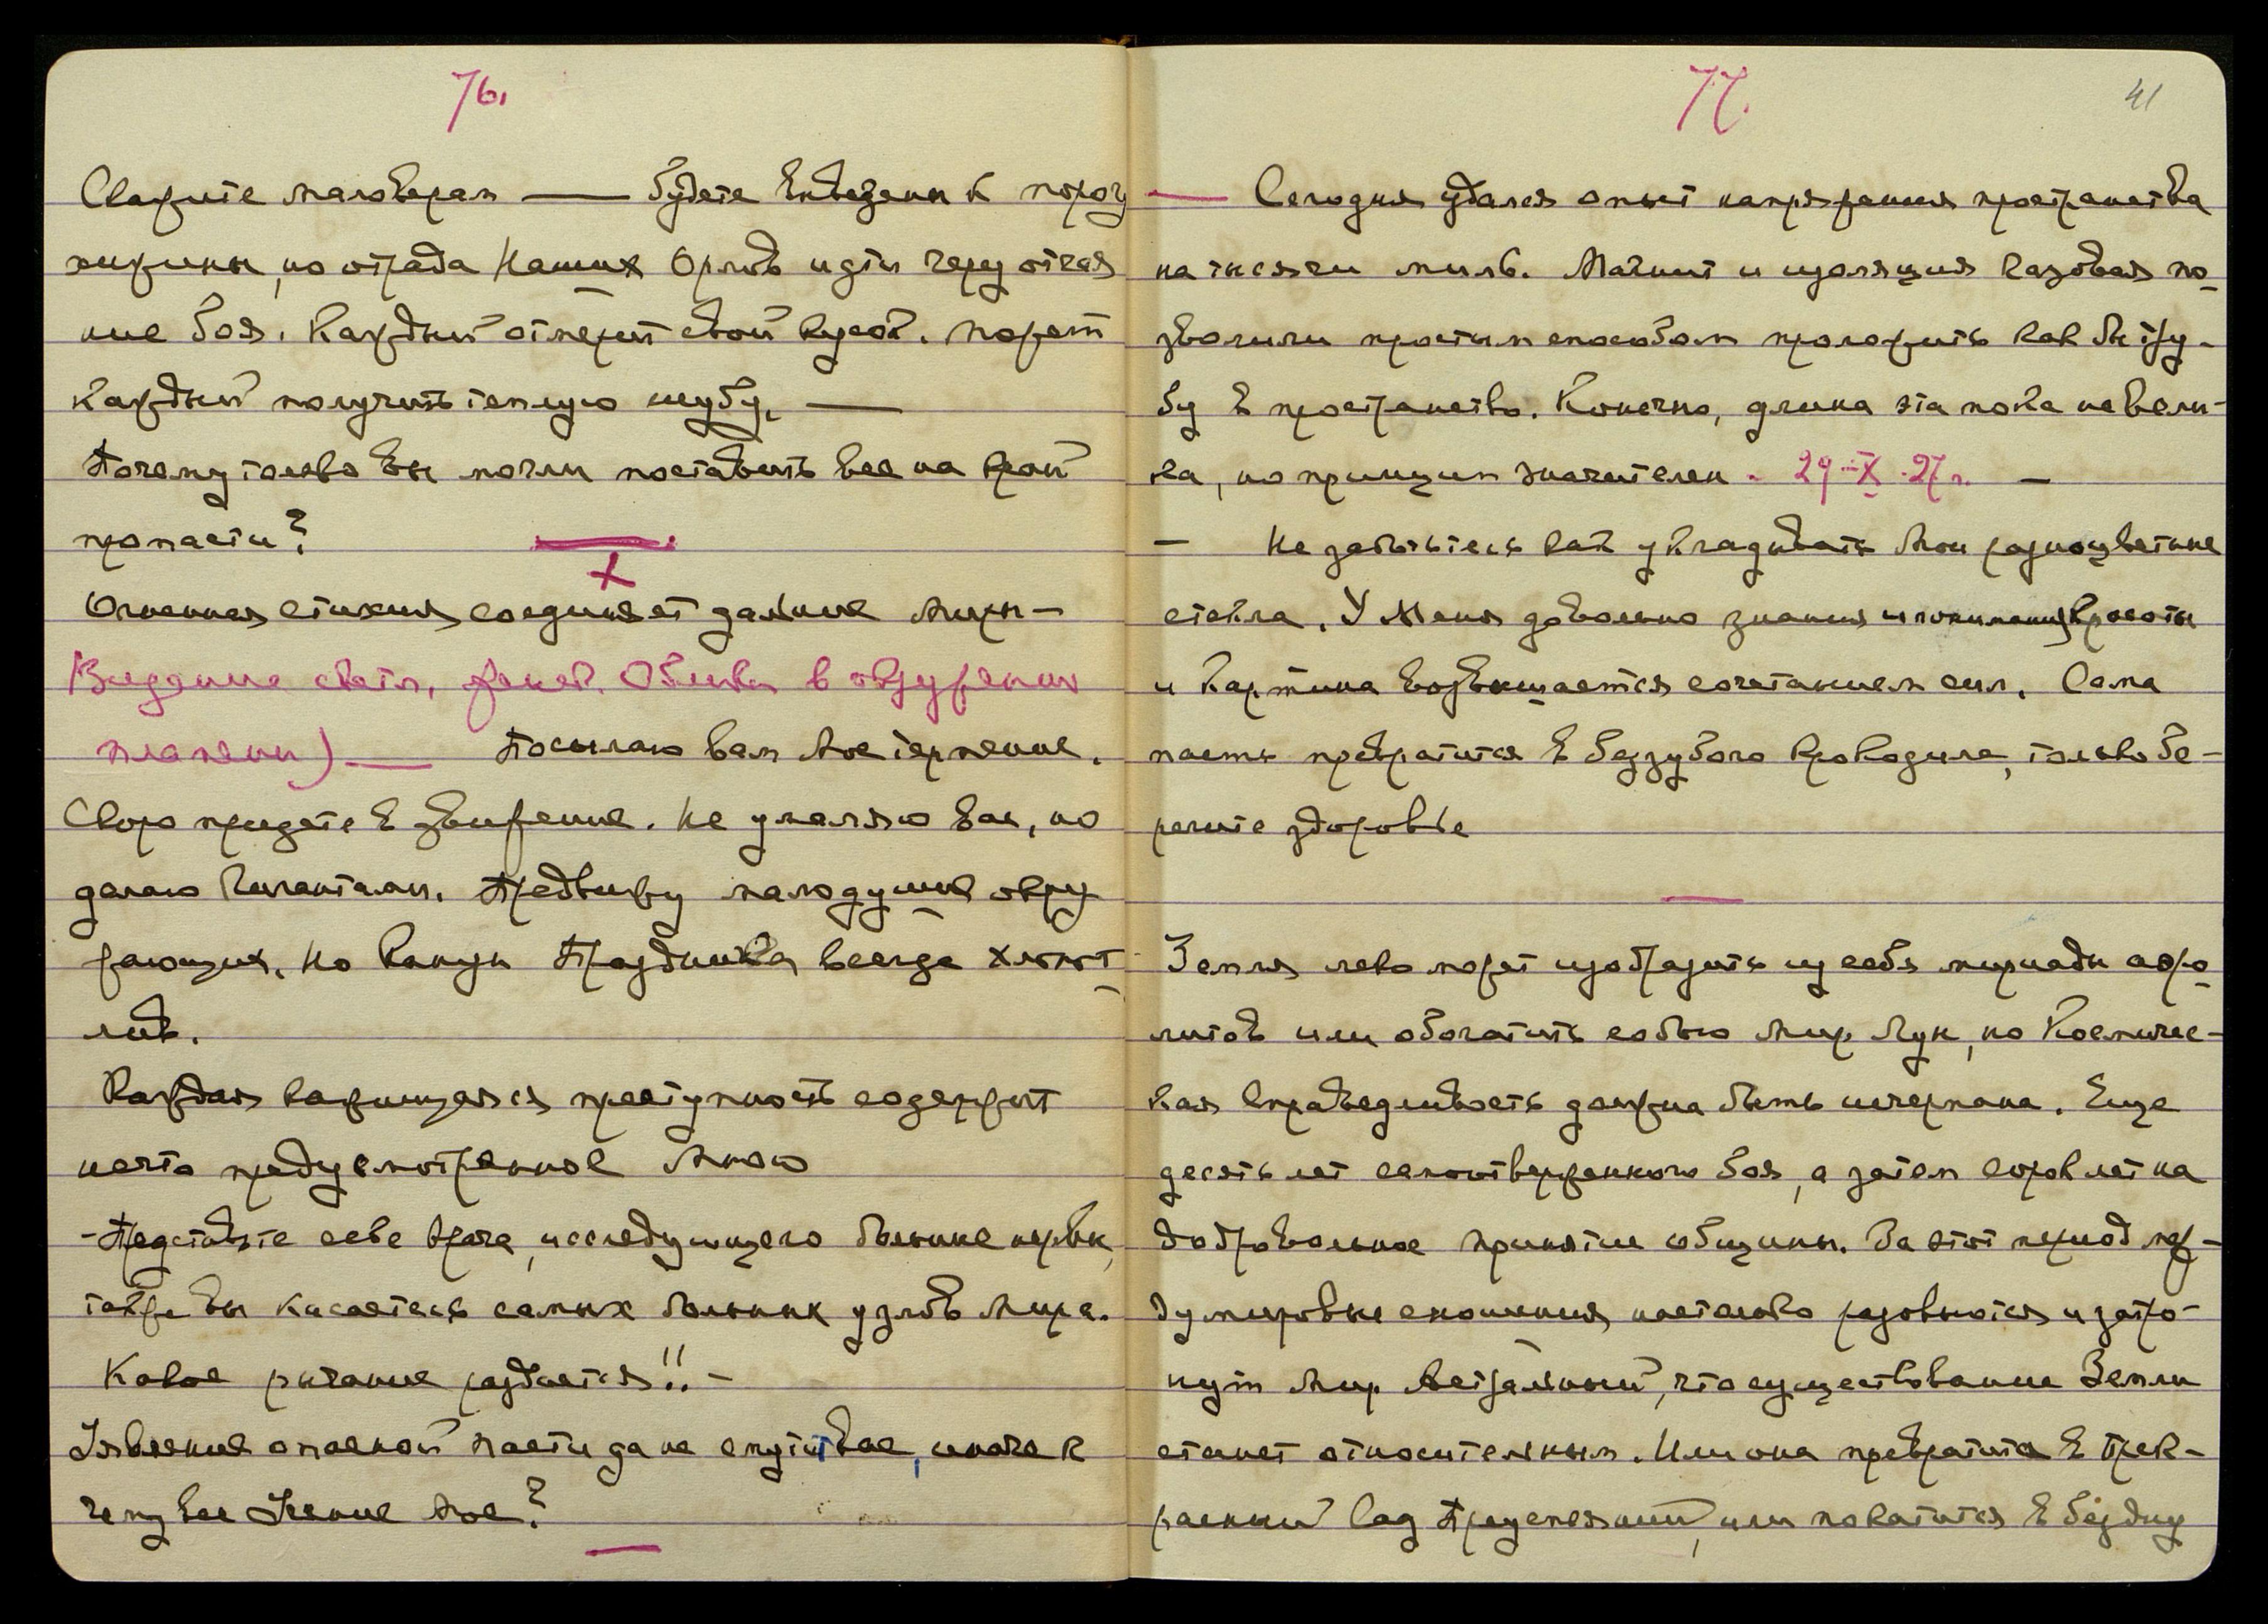 76.
Скажите маловерам — будете введены к порогу
хижины, но отрада Наших Орлов идти через отвая
ние боя. Каждый отмерит свой кусок. Может
каждый получить теплую шубу. —
Почему только вы могли поставить все на край
пропасти?
x
Огненная стихия соединяет дальние миры —
Видение светл. женск. Облика в окружении
пламени) — Посылаю вам Мое терпение.
Скоро придете в движение. Не умаляю вас, но
делаю Гигантами. Предвижу малодушие окру
жающих. Но канун Праздника всегда хлопот
лив.
Каждая кажущаяся преступность содержит
нечто предусмотренное Мною
- Представьте себе врача, исследующего больные нервы,
также вы касаетесь самых больных узлов мира.
Какое рычание раздается!! -
Явление опасной пасти да не смутит вас, иначе к
чему все Учение Мое?
77.
41
— Сегодня удался опыт напряжения пространства
на тысячи миль. Магнит и изоляция газовая по
зволили простым способом проложить как бы тру-
бу в пространство. Конечно, длина эта пока невели-
ка, но принцип значителен. 29-X-27 г. —
— Не забывтесь как укладывать Мои разноцветные
стекла. У Меня довольно знания и понимания красоты
и картина возвышается сочетанием сил. Сама
пасть превратится в беззубого крокодила, только бе-
регите здоровье
Земля легко может изобразить из себя мириады аэро
литов или обогатить собою мир Лун, но Космичес-
кая Справедливость должна быть исчерпана. Еще
десять лет самоотверженного боя, а затем сорок лет на
добровольное принятие общины. За этот период меж-
думировые сношения настолько разовьются и затро-
нут Мир Астральный, что существование Земли
станет относительным. Или она превратится в прек-
расный Сад Преуспеяний, или покатится в бездну